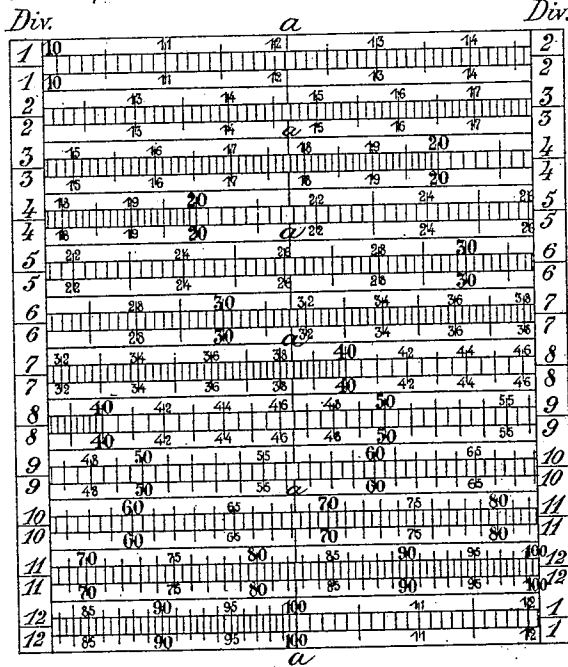 Div. a Div.
1 10 11 12 13 14 2
1 10 11 12 13 14 2
2 13 14 15 16 17 3
2 13 14 15 16 17 3
a
3 15 16 17 18 19 20 4
3 15 16 17 18 19 20 4
4 18 19 20 22 24 26 5
4 18 19 20 22 24 26 5
a
5 22 24 26 28 30 6
5 22 24 26 28 30 6
6 28 30 32 34 36 38 7
6 28 30 32 34 36 38 7
a
7 32 34 36 38 40 42 44 46 8
7 32 34 36 38 40 42 44 46 8
8 40 42 44 46 48 50 55 9
8 40 42 44 46 48 50 55 9
9 48 50 55 60 65 10
9 48 50 55 60 65 10
a
10 60 65 70 75 80 11
10 60 65 70 75 80 11
11 70 75 80 85 90 95 100 12
11 70 75 80 85 90 95 100 12
12 85 90 95 100 11 12 1
12 85 90 95 100 11 12 1
a